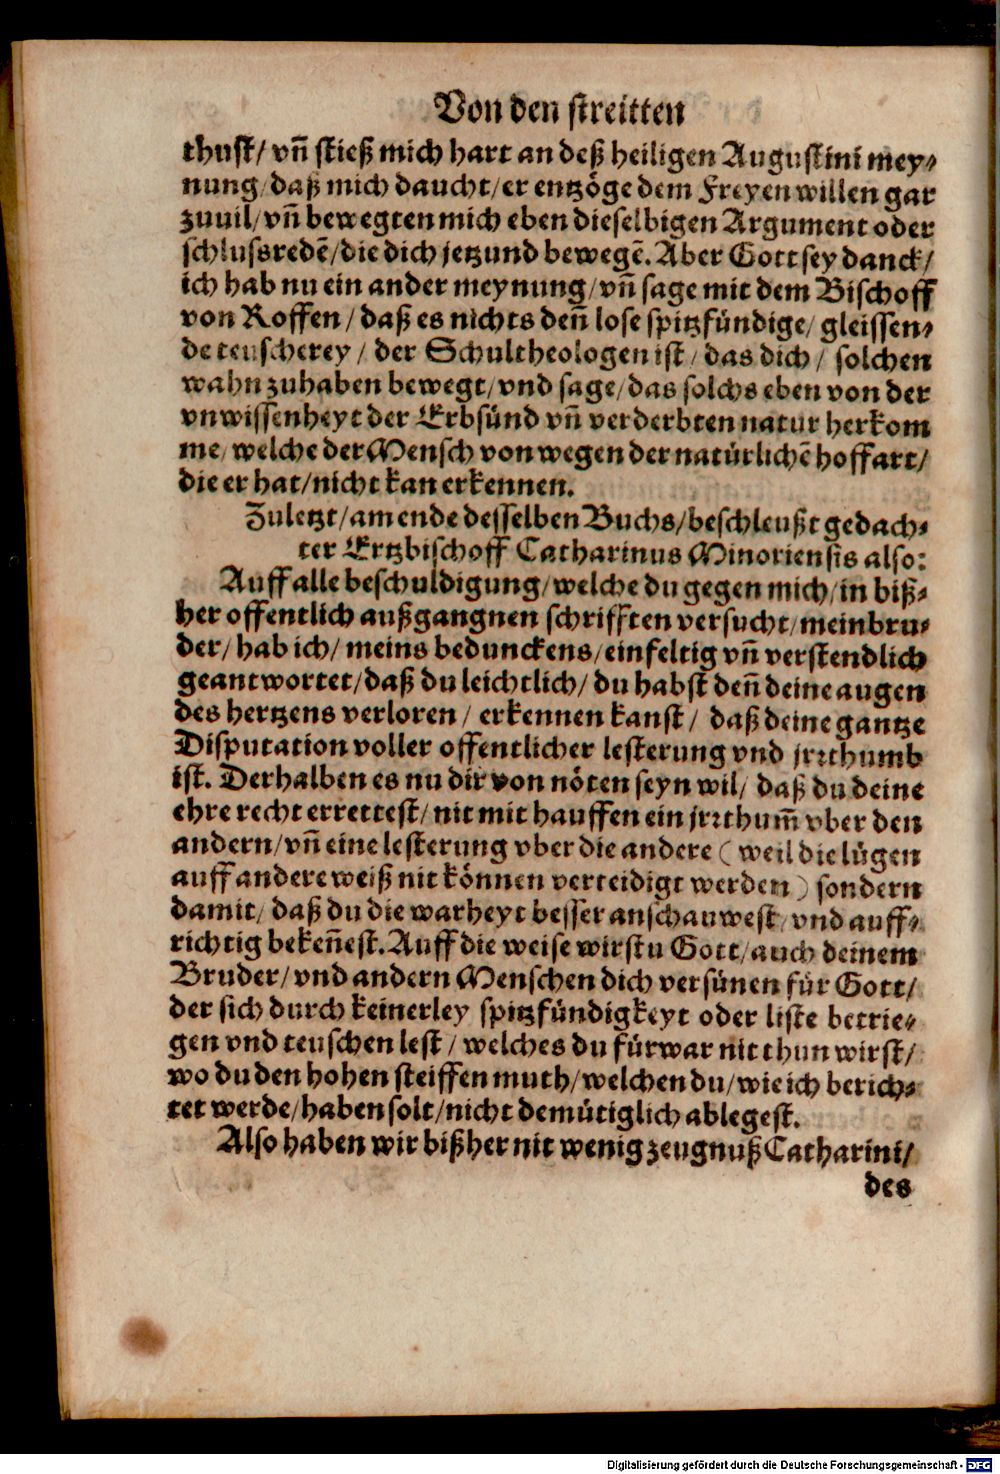 Von den streitten
thust/ vn̄ stieß mich hart an deß heiligen Augustini mey⸗
nung/ daß mich daucht/ er entzöge dem Freyen willen gar
zuuil/ vn̄ bewegten mich eben dieselbigen Argument oder
schlussredē/ die dich jetzund bewegē. Aber Gott sey danck/
ich hab nu ein ander meynung/ vn̄ sage mit dem Bischoff
von Roffen/ daß es nichts den̄ lose spitzfündige/ gleissen⸗
de teuscherey/ der Schultheologen ist/ das dich/ solchen
wahn zuhaben bewegt/ vnd sage/ das solchs eben von der
vnwissenheyt der Erbsünd vn̄ verderbten natur herkom
me/ welche der Mensch von wegen der natürlichē hoffart/
die er hat/ nicht kan erkennen.
Zuletzt/ am ende desselben Buchs/ beschleußt gedach⸗
ter Ertzbischoff Catharinus Minoriensis also:
Auff alle beschuldigung/ welche du gegen mich/ in biß⸗
her offentlich außgangnen schrifften versucht/ mein bru⸗
der/ hab ich/ meins bedunckens/ einfeltig vn̄ verstendlich
geantwortet/ daß du leichtlich/ du habst den̄ deine augen
des hertzens verloren/ erkennen kanst/ daß deine gantze
Disputation voller offentlicher lesterung vnd jrꝛthumb
ist. Derhalben es nu dir von nöten seyn wil/ daß du deine
ehre recht errettest/ nit mit hauffen ein jrꝛthum̄ vber den
andern/ vn̄ eine lesterung vber die andere (weil die lügen
auff andere weiß nit können verteidigt werden) sondern
damit/ daß du die warheyt besser anschauwest/ vnd auff⸗
richtig beken̄est. Auff die weise wirstu Gott/ auch deinem
Bruder/ vnd andern Menschen dich versünen für Gott/
der sich durch keinerley spitzfündigkeyt oder liste betrie⸗
gen vnd teuschen lest/ welches du fürwar nit thun wirst/
wo du den hohen steiffen muth/ welchen du/ wie ich berich⸗
tet werde/ haben solt/ nicht demütiglich ablegest.
Also haben wir bißher nit wenig zeugnuß Catharini/
des
Digitalisierung gefördert durch die Deutsche Forschungsgemeinschaft - DFG